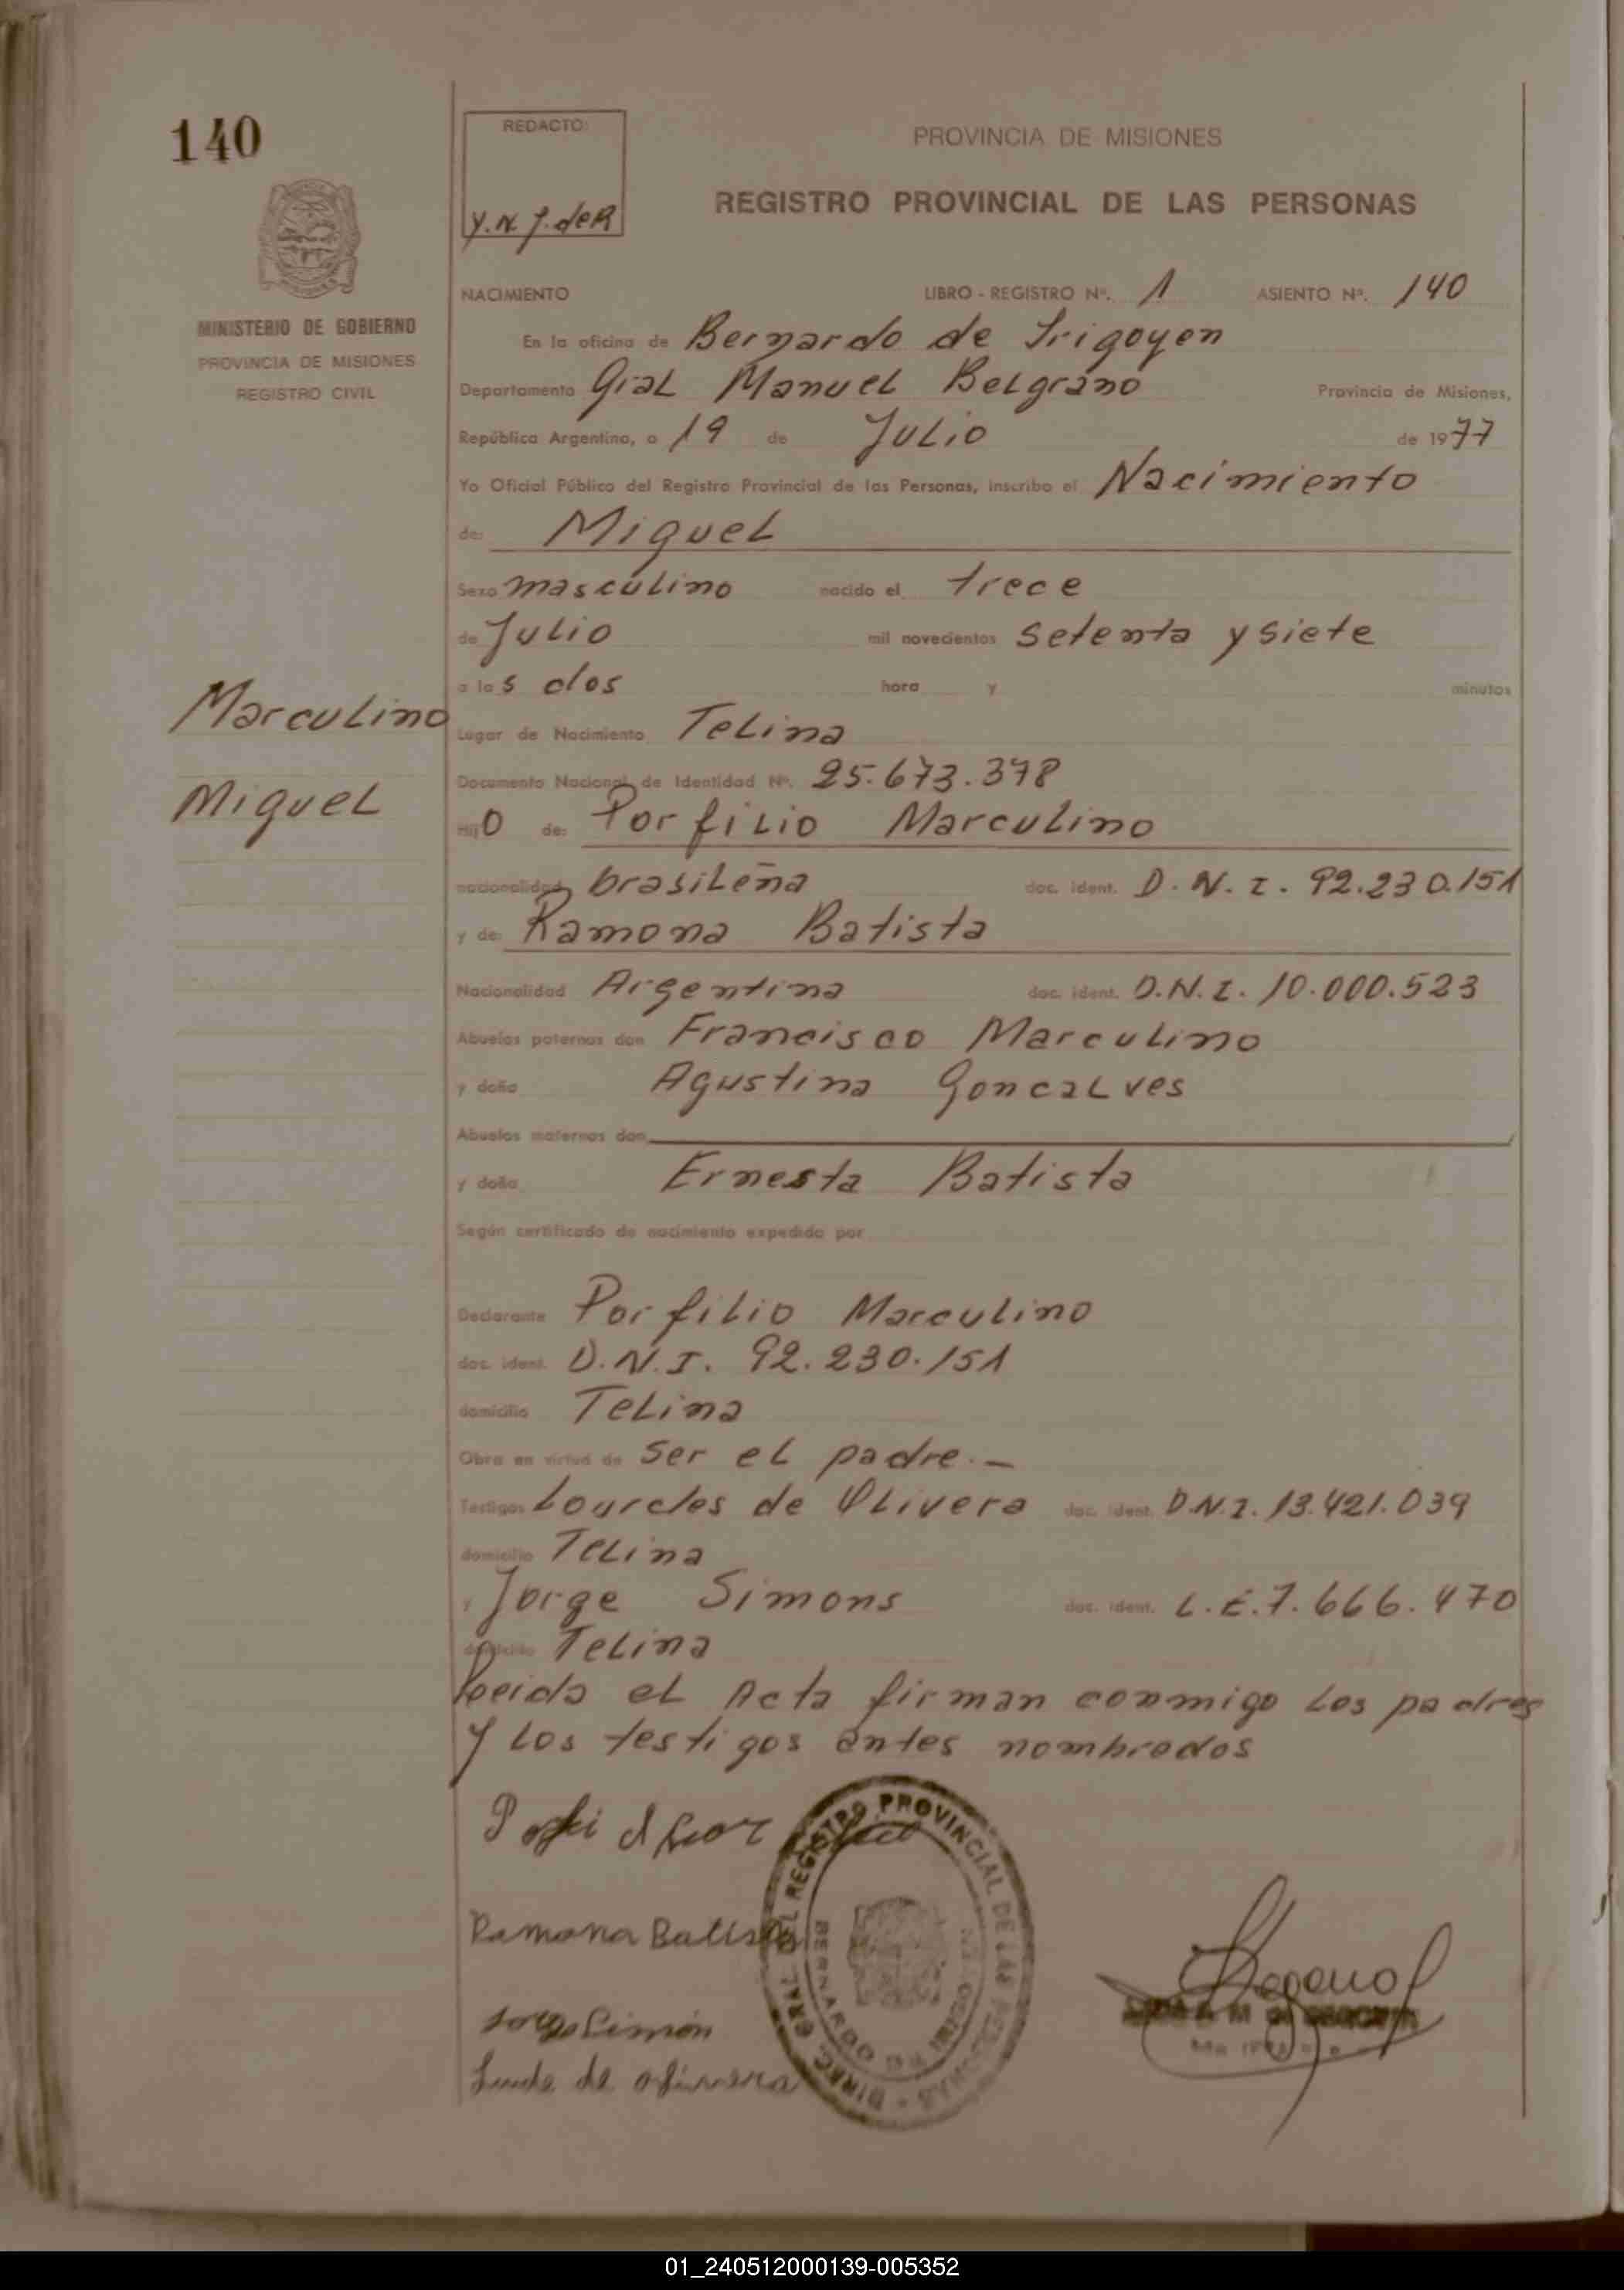 140
REDACTO:
Y.N.J. deR
PROVINCIA DE MISIONES
REGISTRO PROVINCIAL DE LAS PERSONAS
MINISTERIO DE GOBIERNO
PROVINCIA DE MISIONES
REGISTRO CIVIL
NACIMIENTO LIBRO - REGISTRO Nº. 1 ASIENTO Nº. 140
En la oficina de Bernardo de Irigoyen
Departamento Gral Manuel Belgrano Provincia de Misiones,
República Argentina, a 19 de Julio de 1977
Yo Oficial Público del Registro Provincial de las Personas, inscribo el Nacimiento
de: Miguel
Sexo masculino nacido el trece
de Julio mil novecientos setenta y siete
a las dos hora y minutos
Marculino
Miguel
Lugar de Nacimiento Telina
Documento Nacional de Identidad Nº. 25.673.378
Hijo de: Porfilio Marculino
nacionalidad brasileña doc. ident. D.N.I. 92.230.151
y de: Ramona Batista
Nacionalidad Argentina doc. ident. D.N.I. 10.000.523
Abuelos paternos don Francisco Marculino
y doña Agustina Goncalves
Abuelos maternos don
y doña Ernesta Batista
Según certificado de nacimiento expedido por
Declarante Porfilio Marculino
doc. ident. D.N.I. 92.230.151
domicilio Telina
Obra en virtud de ser el padre.-
Testigos Lourdes de Olivera doc. ident. D.N.I. 13.421.039
domicilio Telina
y Jorge Simons doc. ident. L.E. 7.666.470
domicilio Telina
Leida el Acta firman conmigo los padres
y los testigos antes nombrados
Ramona Batista
Jorge Simón
de olivera
DIREC. GRAL. DEL REGISTRO PROVINCIAL DE LAS PERSONAS
BERNARDO DE IRIGOYEN
01_240512000139-005352